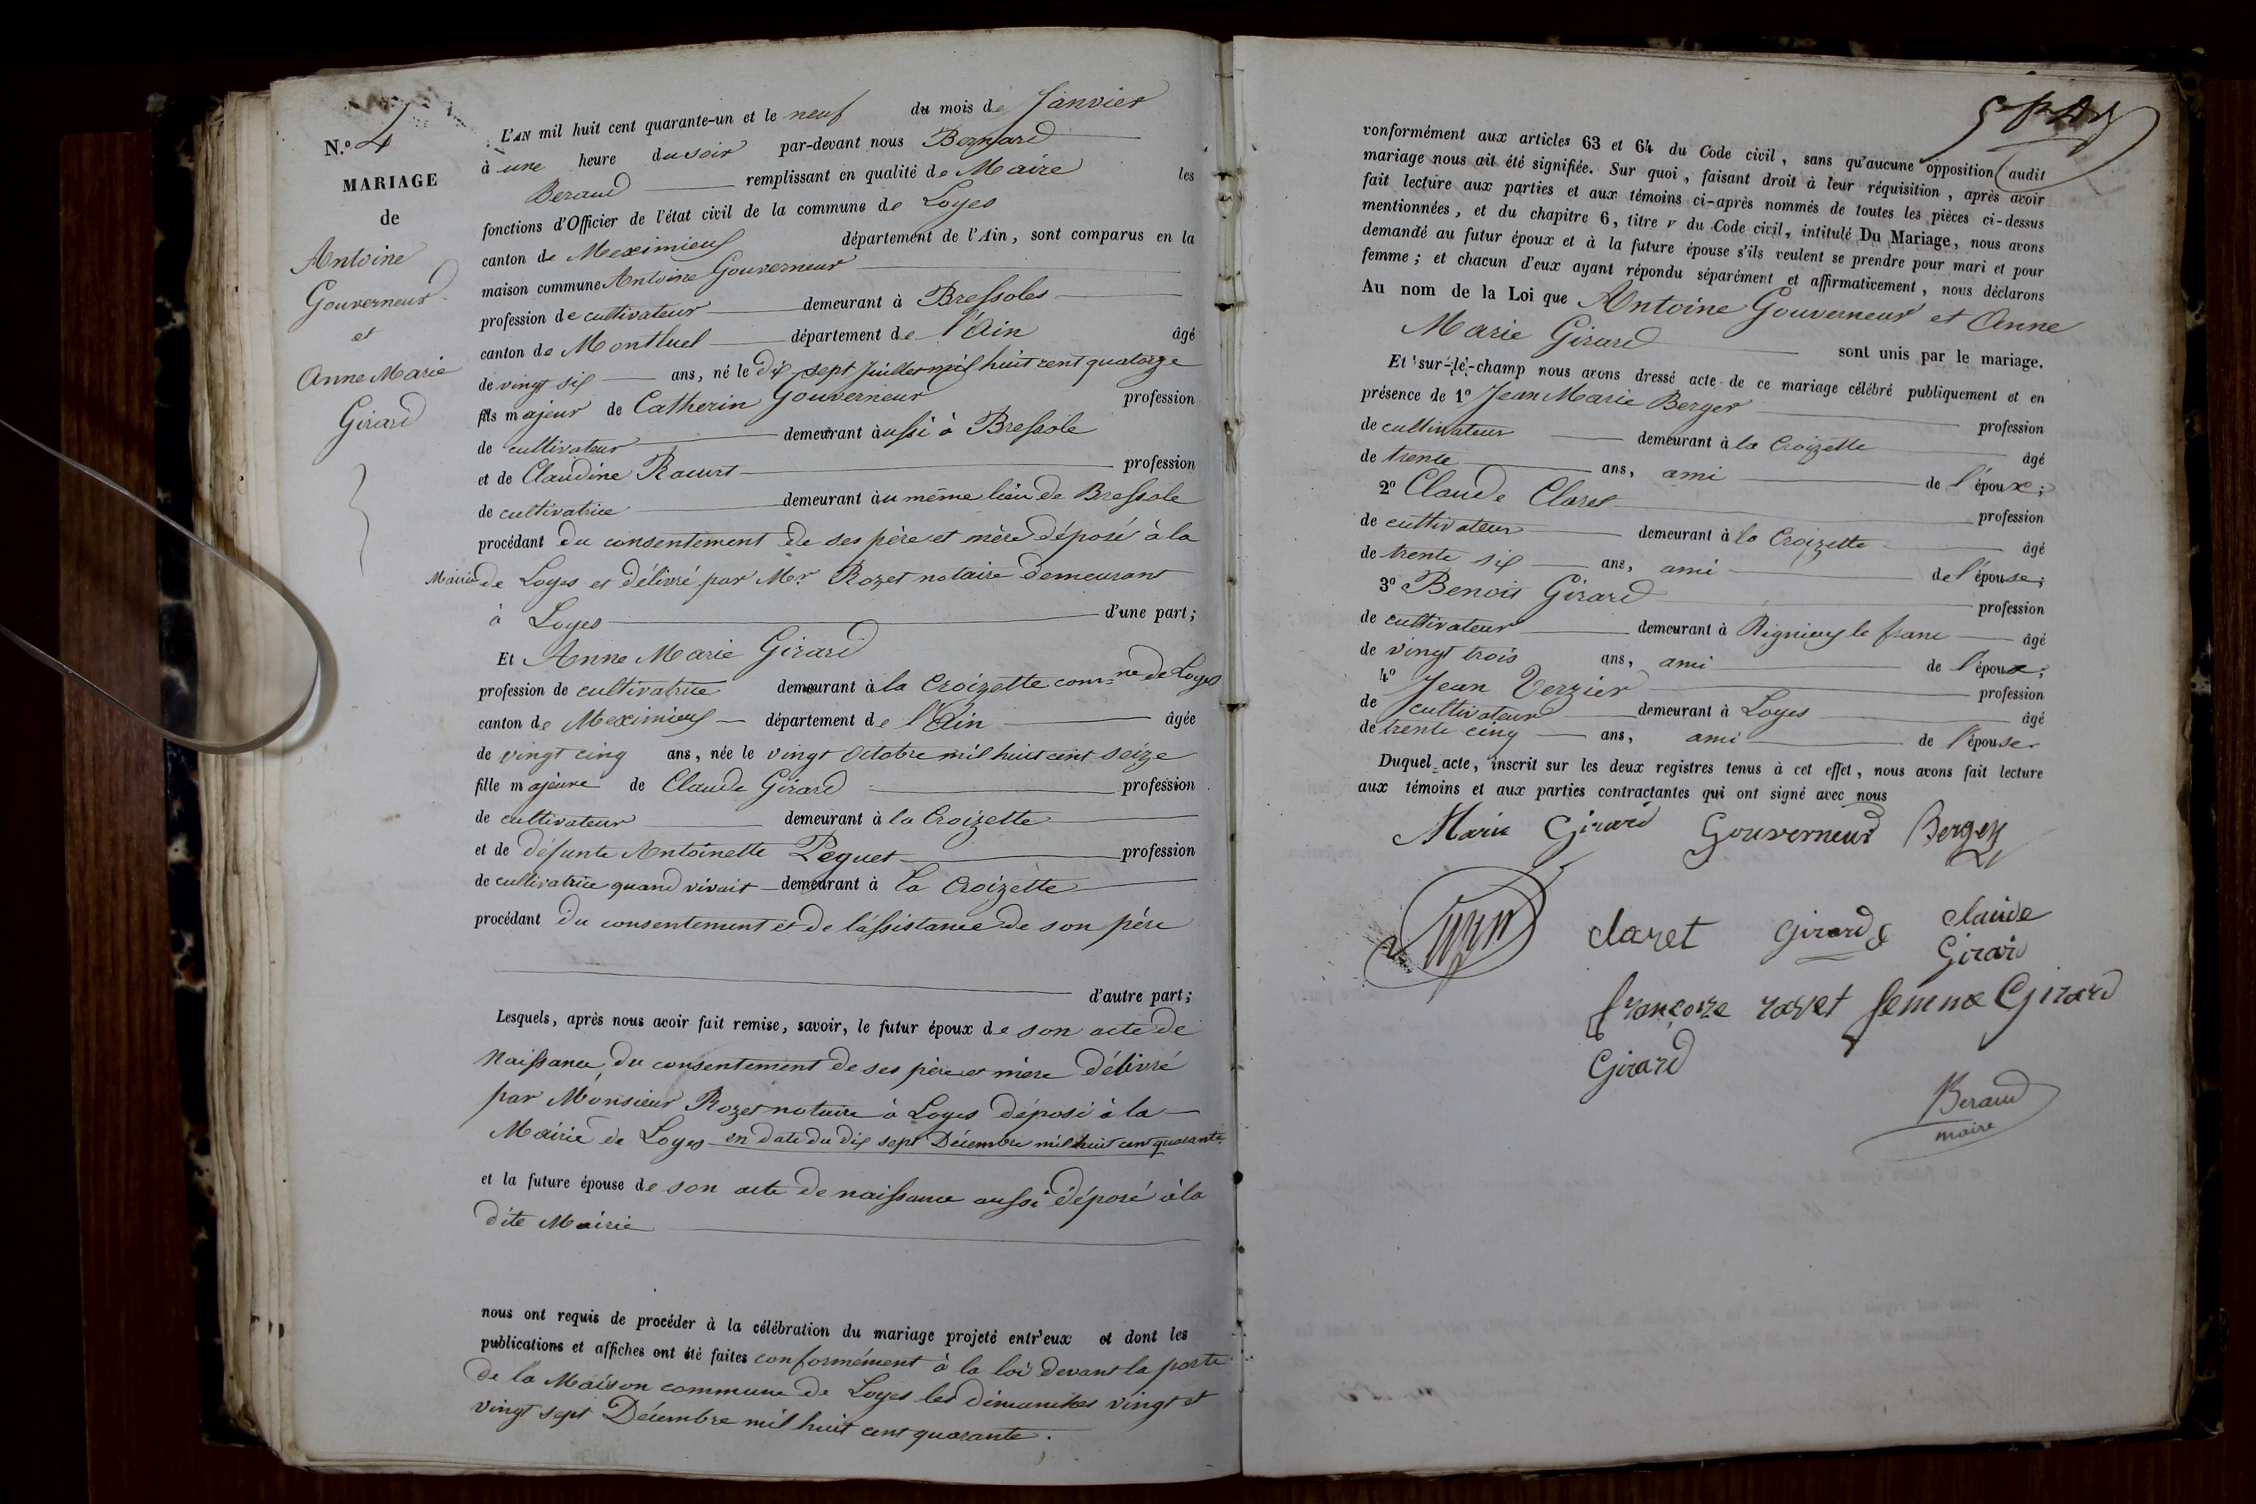 N.º 4
MARIAGE
de
Antoine
Gouverneur
et
Anne Marie
Girard
L'AN mil huit cent quarante-un et le neuf du mois de Janvier
à une heure du soir par-devant nous Bernard
Beraud remplissant en qualité de Maire les
fonctions d'Officier de l'état civil de la commune de Loyes
canton de Meximieux département de l'Ain, sont comparus en la
maison commune Antoine Gouverneur
profession de cultivateur demeurant à Bressoles
canton de Montluel département de l'Ain âgé
de vingt six ans, né le dix sept Juillet mil huit cent quatorze
fils majeur de Catherin Gouverneur profession
de cultivateur demeurant aussi à Bressole
et de Claudine profession
de cultivatrice demeurant au même lieu de Bressole
procédant du consentement de ses père et mère déposé à la
Mairie de Loyes et délivré par Mr Rozet notaire demeurant
à Loyes d'une part;
Et Anne Marie Girard
profession de cultivatrice demeurant à la Croizette com=ne de Loyes
canton de Meximieux département de l'Ain âgée
de vingt cinq ans, née le vingt octobre mil huit cent seize
fille majeure de Claude Girard profession
de cultivateur demeurant à la Croizette
et de défunte Antoinette Peguet profession
de cultivatrice quand vivait demeurant à la Croizette
procédant du consentement et de l'assistance de son père
d'autre part;
Lesquels, après nous avoir fait remise, savoir, le futur époux de son acte de
naissance, du consentement de ses père et mère délivré
par Monsieur Rozet notaire à Loyes déposé à la
Mairie de Loyes en date du dix sept Décembre mil huit cent quarante
et la future épouse de son acte de naissance aussi déposé à la
dite Mairie
nous ont requis de procéder à la célébration du mariage projeté entr'eux et dont les
publications et affiches ont été faites conformément à la loi devant la porte
de la Maison commune de Loyes les dimanches vingt et
vingt sept Décembre mil huit cent quarante.
conformément aux articles 63 et 64 du Code civil, sans qu'aucune opposition audit
mariage nous ait été signifiée. Sur quoi, faisant droit à leur réquisition, après avoir
fait lecture aux parties et aux témoins ci-après nommés de toutes les pièces ci-dessus
mentionnées, et du chapitre 6, titre v du Code civil, intitulé Du Mariage, nous avons
demandé au futur époux et à la future épouse s'ils veulent se prendre pour mari et pour
femme; et chacun d'eux ayant répondu séparément et affirmativement, nous déclarons
Au nom de la Loi que Antoine Gouverneur et Anne
Marie Girard sont unis par le mariage.
Et sur-le-champ nous avons dressé acte de ce mariage célébré publiquement et en
présence de 1º Jean Marie Berger profession
de cultivateur demeurant à la Croizette âgé
de trente ans, ami de l'époux;
2º Claude Claret profession
de cultivateur demeurant à la Croizette âgé
de trente six ans, ami de l'épouse;
3º Benoit Girard profession
de cultivateur demeurant à Rignieux le franc âgé
de vingt trois ans, ami de l'époux;
4º Jean Verzier profession
de cultivateur demeurant à Loyes âgé
de trente cinq ans, ami de l'épouse.
Duquel acte, inscrit sur les deux registres tenus à cet effet, nous avons fait lecture
aux témoins et aux parties contractantes qui ont signé avec nous
Marie Girard Gouverneur Berger
claret Girard claude
Girard
françoize ravet femme Girard
Girard
Beraud
maire